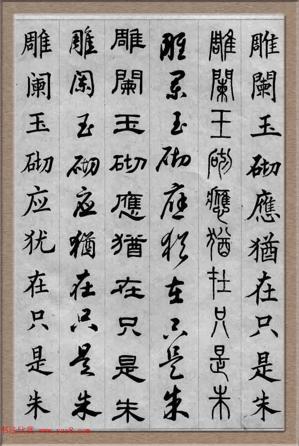 雕闌玉砌應猶在只是朱
雕闌玉砌應猶在只是朱
雕闌玉砌應猶在只是朱
雕闌玉砌應猶在只是朱
雕阑玉砌应猶在只是朱
雕阑玉砌应犹在只是朱